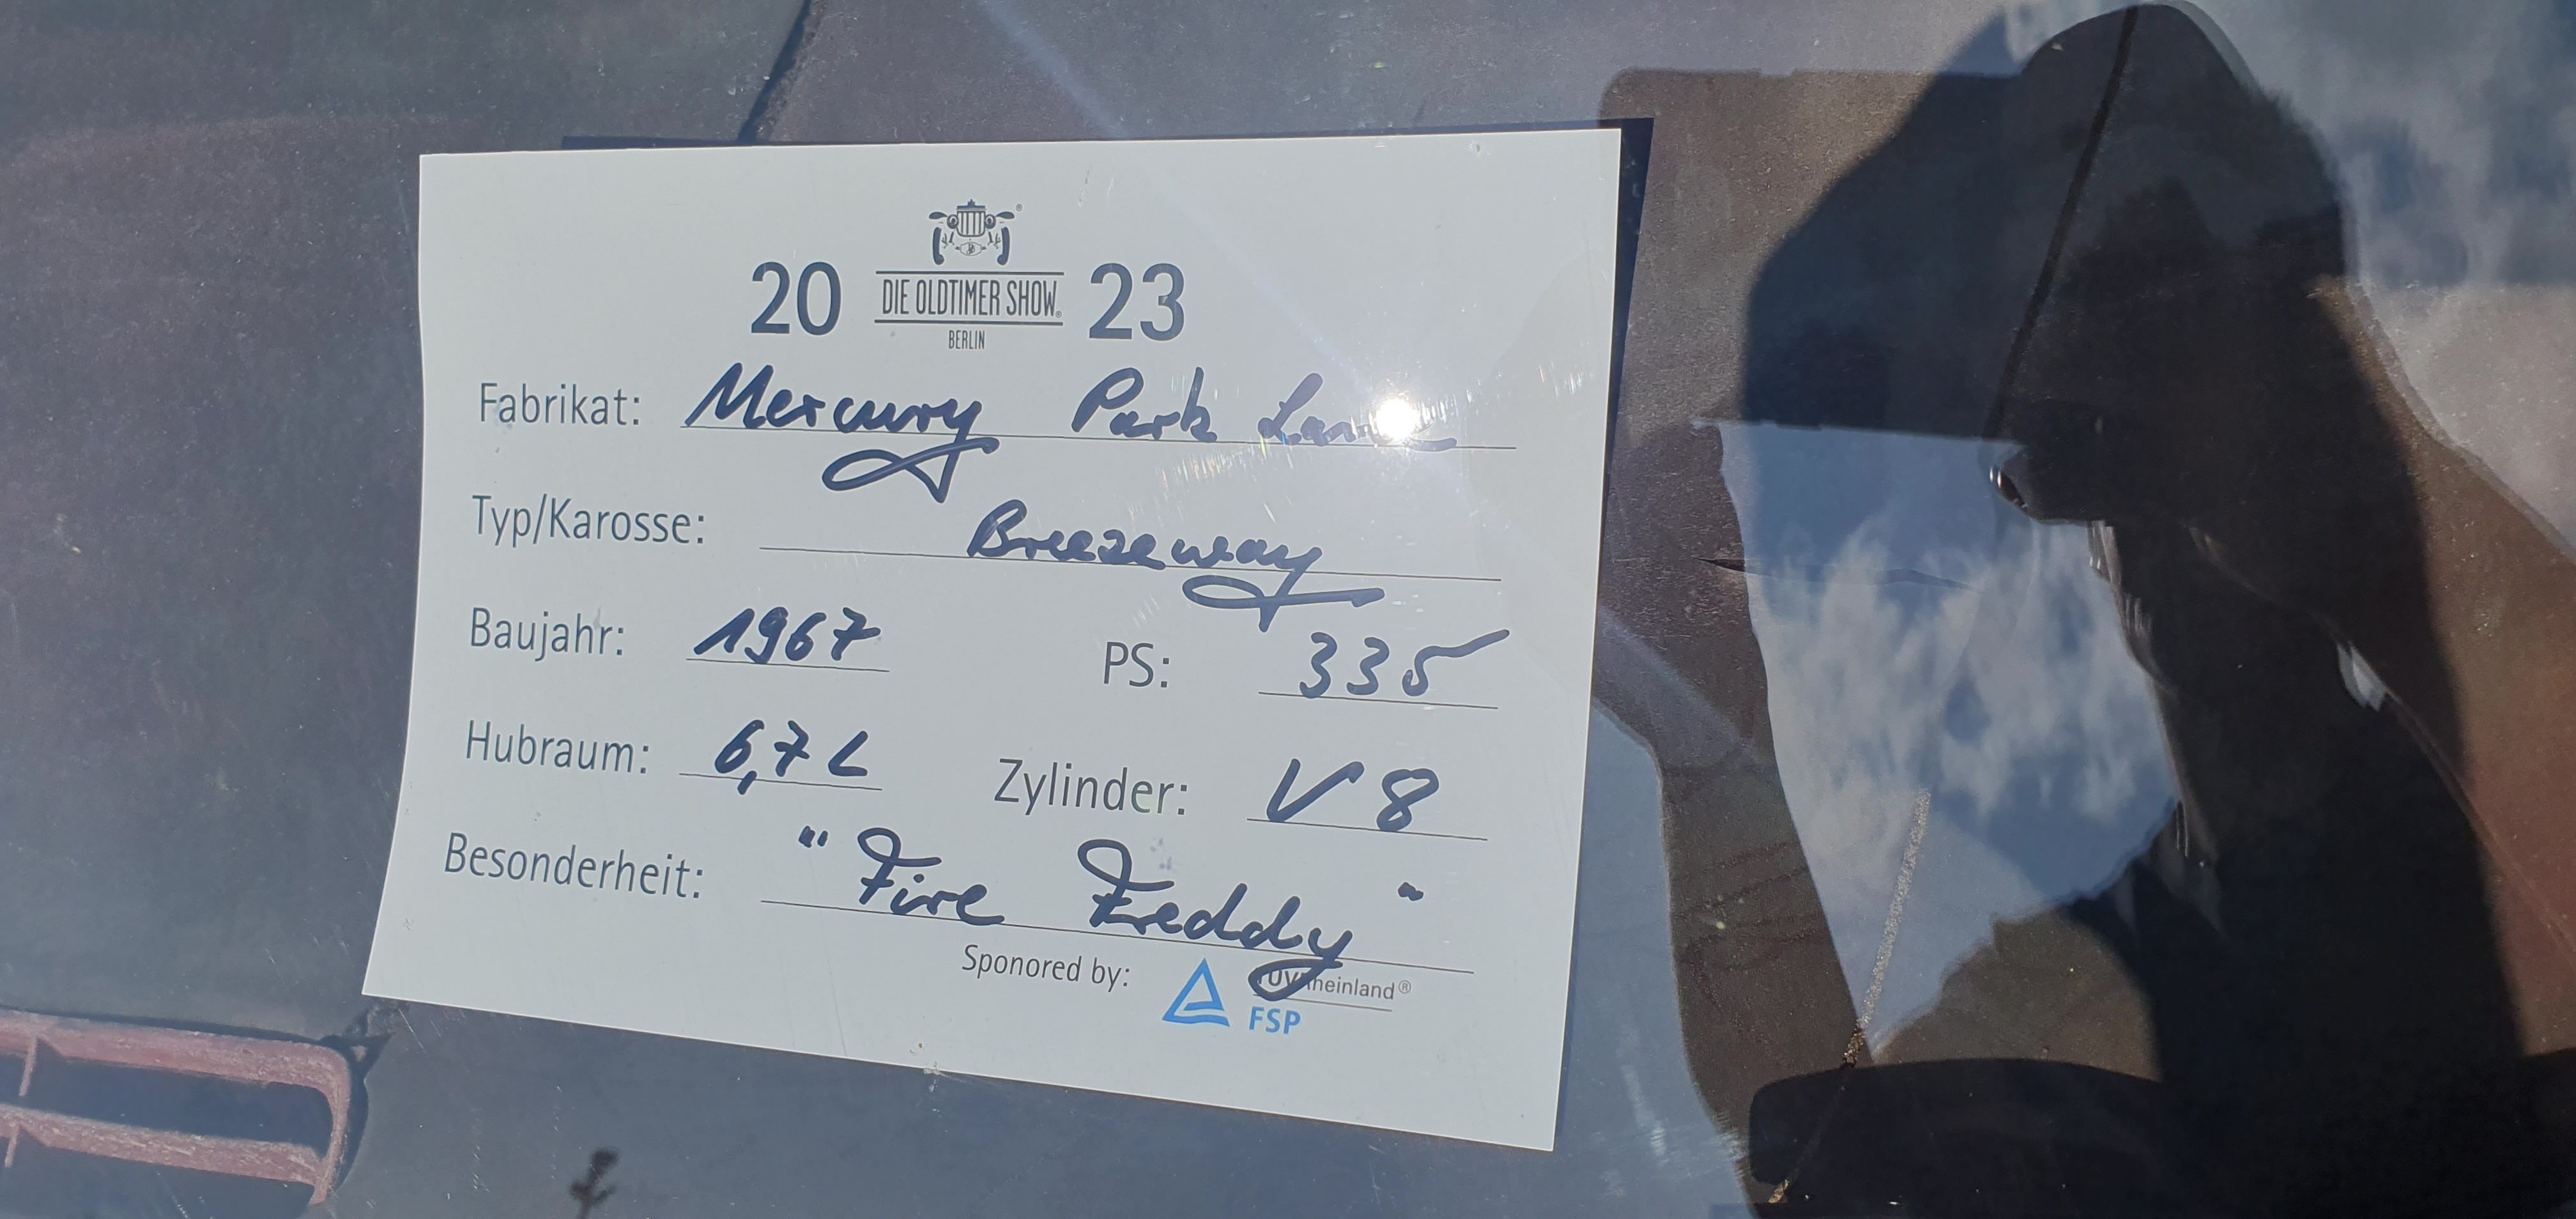 20 DIE OLDTIMER SHOW® 23
BERLIN
Fabrikat: Mercury Park Lane
Typ/Karosse: Breezeway
Baujahr: 1967 PS: 335
Hubraum: 6,7 L Zylinder: V8
Besonderheit: "Fire Freddy"
Sponored by: TÜVRheinland®
FSP